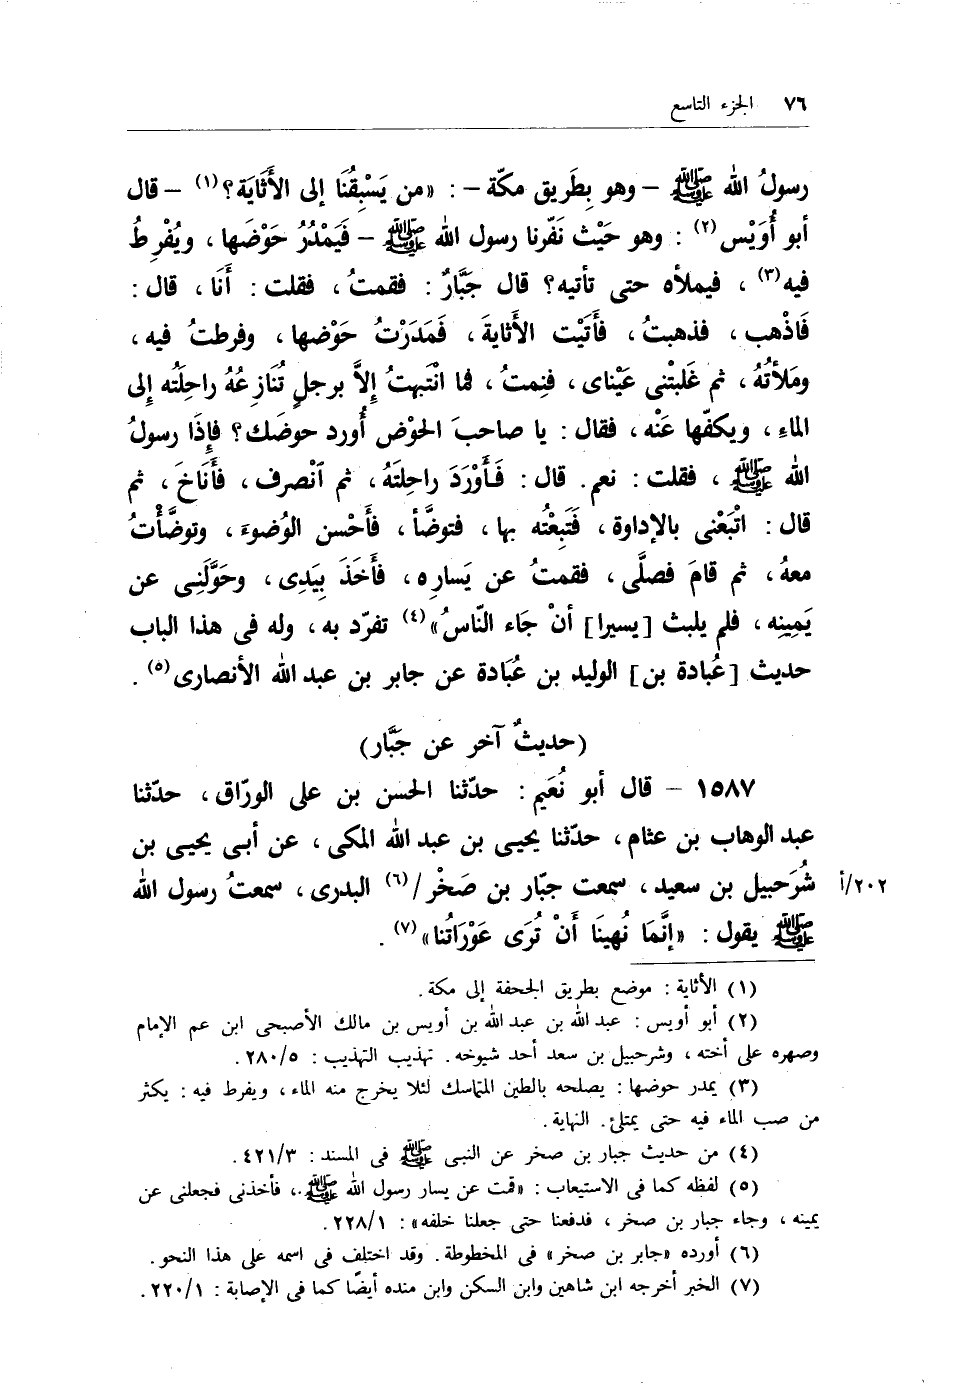 ٧٦ الجزء التاسع
رسولُ الله ﷺ – وهو بِطَريق مكّة – : «من يَسْبِقُنَا إلى الأَثَايَة؟(١) – قال
أبو أُوَيْس(٢) : وهو حَيْث نَفّرنا رسول الله ﷺ – فَيَمْدُرُ حَوْضَها ، ويُفْرِطُ
فيه(٣) ، فيملأه حتى تأتيه؟ قال جَبَّارٌ : فقمتُ ، فقلت : أَنَا ، قال :
فَاذْهب ، فذهبتُ ، فأَتَيْت الأَثايةَ ، فَمَدَرْتُ حَوْضها ، وفرطتُ فيه ،
ومَلأتُهُ ، ثم غَلبتْنى عَيْناى ، فنِمتُ ، فما انْتَبهتُ إلاَّ برجلٍ تُنَازِعُهُ راحِلَته إلى
الماءِ ، ويكفّها عَنْه ، فقال : يا صاحبَ الحوْض أُورد حوضك؟ فإِذَا رسولُ
الله ﷺ ، فقلت : نعم. قال : فَأَوْرَدَ راحِلتَهُ ، ثم اَنْصرف ، فأَنَاخَ ، ثم
قال : اتْبَعْنى بالإداوة ، فَتَبِعْتُه بها ، فتوضَّأ ، فأَحْسن الوُضوءَ ، وتوضَّأْتُ
معهُ ، ثم قامَ فصلَّى ، فقمتُ عن يَسارِه ، فأَخَذَ بِيَدِى ، وحَوَّلَنِى عن
يَمِينِه ، فلم يلبث [يسيرا] أنْ جَاء النّاسُ»(٤) تفرّد به ، وله فى هذا الباب
حديث [عُبادة بن] الوليد بن عُبَادة عن جابر بن عبد الله الأنصارى(٥) .
(حديثٌ آخر عن جَبَّار)
١٥٨٧ – قال أبو نُعَيم : حدّثنا الحسن بن على الورّاق ، حدّثنا
عبد الوهاب بن عثام ، حدّثنا يحيى بن عبد الله المكى ، عن أبى يحيى بن
شُرَحبيل بن سعيد ، سمعت جبّار بن صَخْر /(٦) البدرى ، سمعتُ رسول الله ٢٠٢/أ
ﷺ يقول : «إنَّمَا نُهينَا أَنْ تُرَى عَوْرَاتُنا»(٧) .
(١) الأثاية : موضع بطريق الجحفة إلى مكة .
(٢) أبو أويس : عبد الله بن عبد الله بن أويس بن مالك الأصبحى ابن عم الإمام
وصهره على أخته ، وشرحبيل بن سعد أحد شيوخه. تهذيب التهذيب : ٢٨٠/٥ .
(٣) يمدر حوضها : يصلحه بالطين المتماسك لئلا يخرج منه الماء ، ويفرط فيه : يكثر
من صب الماء فيه حتى يمتلئ. النهاية .
(٤) من حديث جبار بن صخر عن النبى ﷺ فى المسند : ٤٢١/٣ .
(٥) لفظه كما فى الاستيعاب : «قمت عن يسار رسول الله ﷺ ، فأخذنى فجعلنى عن
يمينه ، وجاء جبار بن صخر ، فدفعنا حتى جعلنا خلفه» : ٢٢٨/١ .
(٦) أورده «جابر بن صخر» فى المخطوطة. وقد اختلف فى اسمه على هذا النحو .
(٧) الخبر أخرجه ابن شاهين وابن السكن وابن منده أيضًا كما فى الإصابة : ٢٢٠/١ .